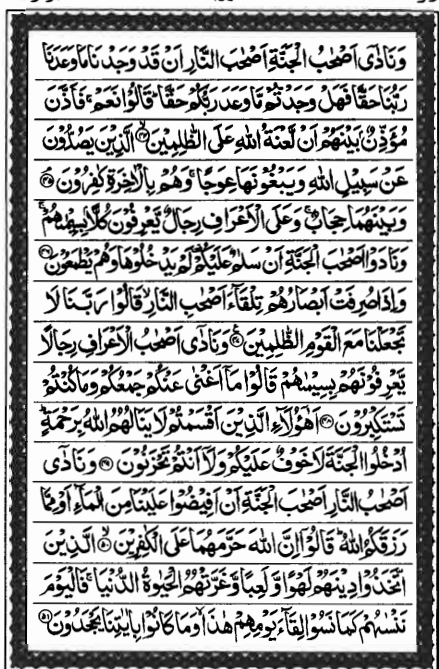 وَنَادٰۤى اَصْحٰبُ الْجَنَّةِ اَصْحٰبَ النَّارِ اَنْ قَدْ وَجَدْنَا مَا وَعَدَنَا
رَبُّنَا حَقًّا فَهَلْ وَجَدْتُّمْ مَّا وَعَدَ رَبُّكُمْ حَقًّا ؕ قَالُوْا نَعَمْ ۚ فَاَذَّنَ
مُؤَذِّنٌۢ بَيْنَهُمْ اَنْ لَّعْنَةُ اللّٰهِ عَلَى الظّٰلِمِيْنَ ﴿۴۴﴾ الَّذِيْنَ يَصُدُّوْنَ
عَنْ سَبِيْلِ اللّٰهِ وَيَبْغُوْنَهَا عِوَجًا ۚ وَهُمْ بِالْاٰخِرَةِ كٰفِرُوْنَ ﴿۴۵﴾
وَبَيْنَهُمَا حِجَابٌ ۚ وَعَلَى الْاَعْرَافِ رِجَالٌ يَّعْرِفُوْنَ كُلًّاۢ بِسِيْمٰىهُمْ ۚ
وَنَادَوْا اَصْحٰبَ الْجَنَّةِ اَنْ سَلٰمٌ عَلَيْكُمْ ۟ لَمْ يَدْخُلُوْهَا وَهُمْ يَطْمَعُوْنَ ﴿۴۶﴾
وَاِذَا صُرِفَتْ اَبْصَارُهُمْ تِلْقَآءَ اَصْحٰبِ النَّارِ ۙ قَالُوْا رَبَّنَا لَا
تَجْعَلْنَا مَعَ الْقَوْمِ الظّٰلِمِيْنَ ﴿۴۷﴾ وَنَادٰۤى اَصْحٰبُ الْاَعْرَافِ رِجَالًا
يَّعْرِفُوْنَهُمْ بِسِيْمٰىهُمْ قَالُوْا مَاۤ اَغْنٰى عَنْكُمْ جَمْعُكُمْ وَمَا كُنْتُمْ
تَسْتَكْبِرُوْنَ ﴿۴۸﴾ اَهٰۤؤُلَآءِ الَّذِيْنَ اَقْسَمْتُمْ لَا يَنَالُهُمُ اللّٰهُ بِرَحْمَةٍ ؕ
اُدْخُلُوا الْجَنَّةَ لَا خَوْفٌ عَلَيْكُمْ وَلَاۤ اَنْتُمْ تَحْزَنُوْنَ ﴿۴۹﴾ وَنَادٰۤى
اَصْحٰبُ النَّارِ اَصْحٰبَ الْجَنَّةِ اَنْ اَفِيْضُوْا عَلَيْنَا مِنَ الْمَآءِ اَوْ مِمَّا
رَزَقَكُمُ اللّٰهُ ؕ قَالُوْۤا اِنَّ اللّٰهَ حَرَّمَهُمَا عَلَى الْكٰفِرِيْنَ ﴿۵۰﴾ الَّذِيْنَ
اتَّخَذُوْا دِيْنَهُمْ لَهْوًا وَّلَعِبًا وَّغَرَّتْهُمُ الْحَيٰوةُ الدُّنْيَا ۚ فَالْيَوْمَ
نَنْسٰىهُمْ كَمَا نَسُوْا لِقَآءَ يَوْمِهِمْ هٰذَا ۙ وَمَا كَانُوْا بِاٰيٰتِنَا يَجْحَدُوْنَ ﴿۵۱﴾